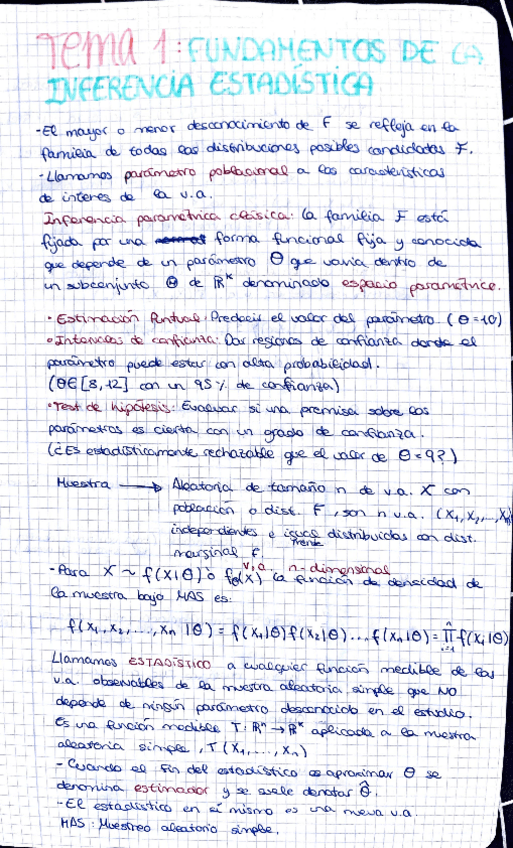 Tema 1: FUNDAMENTOS DE LA
INFERENCIA ESTADÍSTICA
- El mayor o menor desconocimiento de F se refleja en la
familia de todas las distribuciones posibles candidatas F.
- Llamamos parámetro poblacional a las características
de interes de la v.a.
Inferencia paramétrica clásica: la familia F está
fijada por una forma funcional fija y conocida
que depende de un parámetro θ que varia dentro de
un subconjunto Θ de ℝᵏ denominado espacio paramétrico.
• Estimación Puntual: Predecir el valor del parámetro (θ=10)
• Intervalos de confianza: Dar regiones de confianza donde el
parámetro puede estar con alta probabilidad.
(θ∈[8,12] con un 95% de confianza)
• Test de hipótesis: Evaluar si una premisa sobre los
parámetros es cierta con un grado de confianza.
(¿Es estadísticamente rechazable que el valor de θ=9?)
Muestra → Aleatoria de tamaño n de v.a. X con
población o dist. F, son n v.a. (X₁, X₂, ..., Xₙ)
independientes e igualmente distribuidas con dist.
marginal F.
v.a. n-dimensional
- Para X ~ f(x|θ) ó f_θ(x) la función de densidad de
la muestra bajo MAS es:
f(x₁, x₂, ..., xₙ |θ) = f(x₁|θ) f(x₂|θ) ... f(xₙ|θ) = ∏ᵢ₌₁ⁿ f(xᵢ|θ)
Llamamos ESTADÍSTICO a cualquier función medible de las
v.a. observables de la muestra aleatoria simple que NO
depende de ningún parámetro desconocido en el estudio.
Es una función medible T: ℝⁿ → ℝᵏ aplicada a la muestra
aleatoria simple, T(X₁, ..., Xₙ)
- Cuando el fin del estadístico es aproximar θ se
denomina estimador y se suele denotar θ̂.
- El estadístico en sí mismo es una nueva v.a.
MAS: Muestreo aleatorio simple.